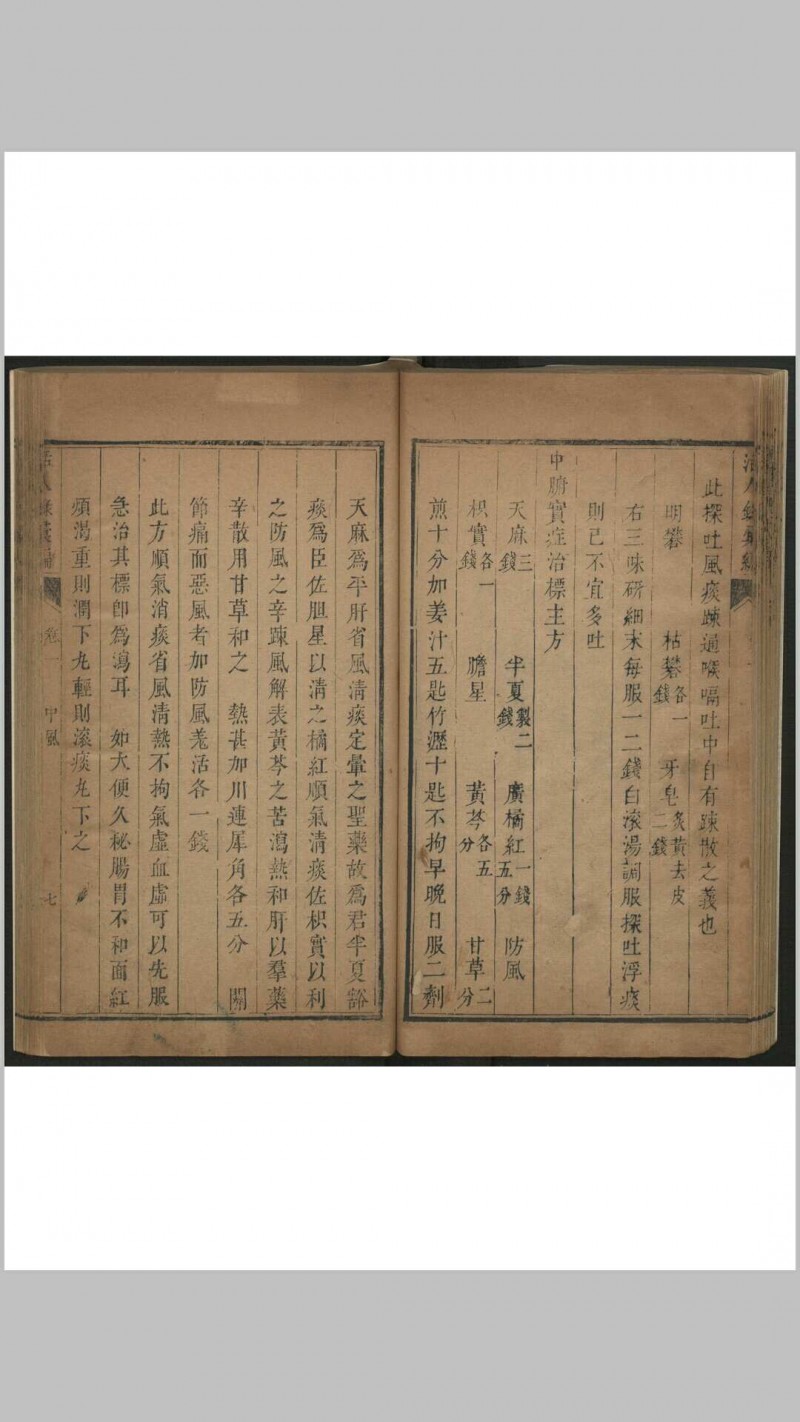 此探吐風痰疎通喉嗝吐中自有疎散之義也
明礬 枯礬各一錢 牙皂炙黃去皮二錢
右三味研細末每服一二錢白滾湯調服探吐浮痰
則已不宜多吐
中腑實症治標主方
天麻三錢 半夏製二錢 廣橘紅一錢五分 防風
枳實各一錢 膽星 黃芩各五分 甘草二分
煎十分加姜汁五匙竹瀝十匙不拘早晚日服二劑
天麻爲平肝省風清痰定暈之聖藥故爲君半夏豁
痰爲臣佐胆星以清之橘紅順氣清痰佐枳實以利
之防風之辛疎風解表黃芩之苦瀉熱和肝以羣藥
辛散用甘草和之 熱甚加川連犀角各五分 關
節痛而惡風者加防風羗活各一錢
此方順氣消痰省風清熱不拘氣虛血虛可以先服
急治其標卽爲瀉耳 如大便久秘腸胃不和面紅
煩渴重則潤下丸輕則滾痰丸下之
中風
七